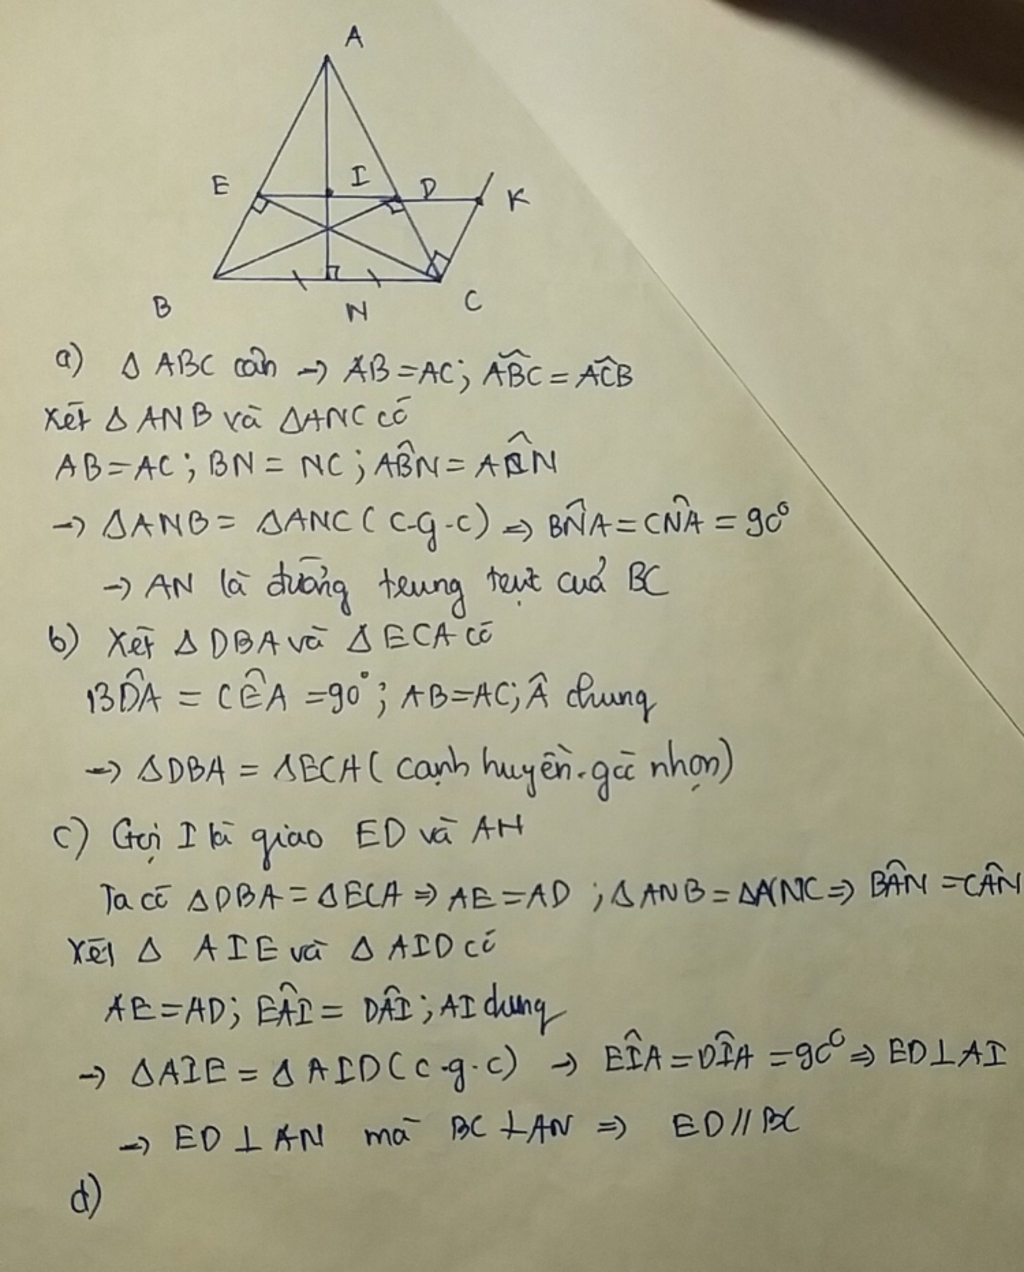 A
E
I
D
K
B
N
C
a) Δ ABC cân → AB = AC; ABC^ = ACB^
Xét Δ ANB và ΔANC có
AB = AC; BN = NC; ABN^ = ACN^
→ ΔANB = ΔANC (c-g-c) => BNA^ = CNA^ = 90°
→ AN là đường trung trực của BC
b) Xét Δ DBA và Δ ECA có
BDA^ = CEA^ = 90°; AB=AC; Â chung
→ ΔDBA = ΔECA (cạnh huyền-góc nhọn)
c) Gọi I là giao ED và AH
Ta có ΔDBA = ΔECA => AE = AD; ΔANB = ΔANC => BAN^ = CAN^
Xét Δ AIE và Δ AID có
AE = AD; EAI^ = DAI^; AI chung
→ ΔAIE = Δ AID (c-g-c) → EIA^ = DIA^ = 90° => ED⊥AI
→ ED ⊥ AN mà BC ⊥ AN => ED // BC
d)